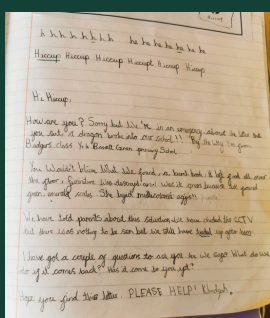 Hiccup
h h h h h h h he he he he he he he
Hiccup Hiccup Hiccup Hiccupt Hiccup Hiccup
Hi Hiccup,
How are you? Sorry but We're in an emergency about the letter that
you sent, a dragon broke into our school!! By the way I'm from
Badgers class Y4 Bassett Green primary School.
You Wouldn't believe What We found, a burnt book, it left food all over
the floor, furniture was destroyed and was it green because we found
green, scales. She layed multicoloured eggs!!
We have told parents about this situation We have checked the CCTV
but there was nothing to be seen but we still have
I have got a couple of questions to ask you. Are we safe? What do we
do if it comes back? Has it come to you yet?
Hope you find this letter. PLEASE HELP! Khadijah,